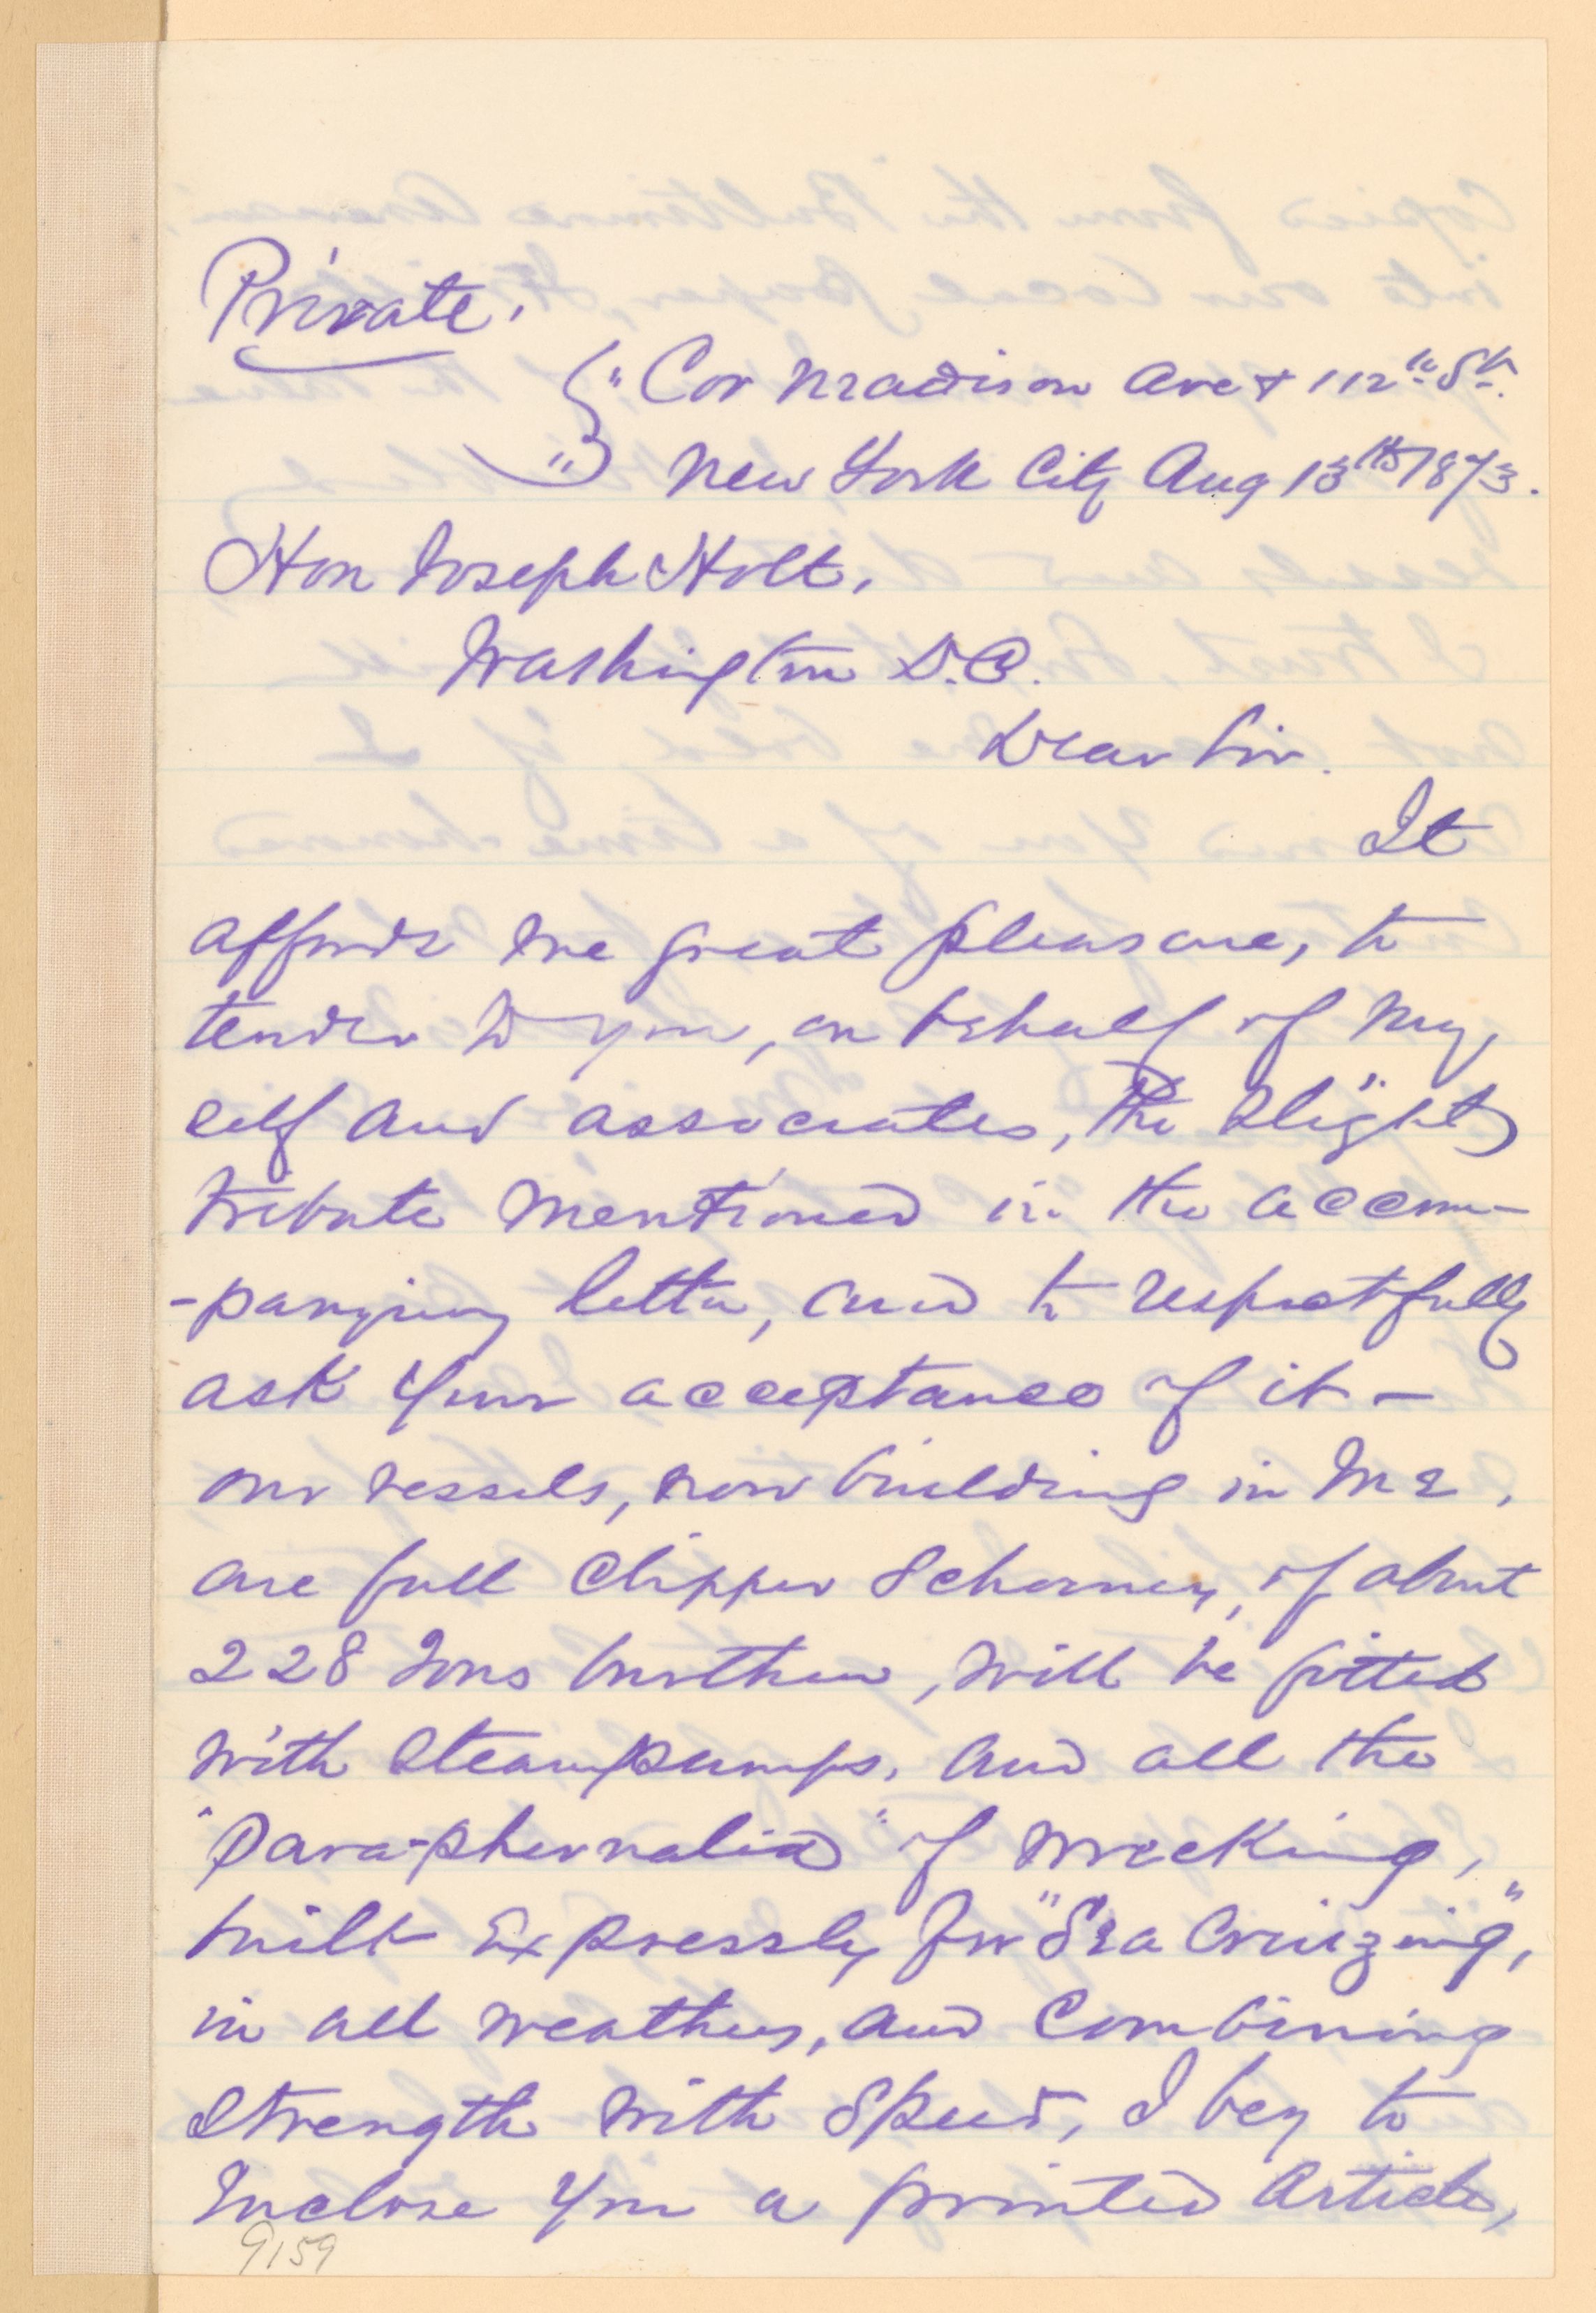 Private.
" Cor Madison Ave & 112th St.
" New York City Aug 13th 1873.
Hon Joseph Holt,
Washington D.C.
Dear Sir.
It
affords me great pleasure, to
tender to you, on behalf of my,
self and associates, the "slight"
tribute mentioned in the accom-
-panying letter, and to respectfully
ask your acceptance of it -
our vessels, now building in Me,
are full Clipper Schooners, of about
228 Tons burthen, will be fitted
with Steam pumps, and all the
"Para-phernalia" of wrecking,
built Expressly for "Sea Cruizing",
in all weathers, and Combining
Strength with Speed, I beg to
Inclose you a printed Article,
9159